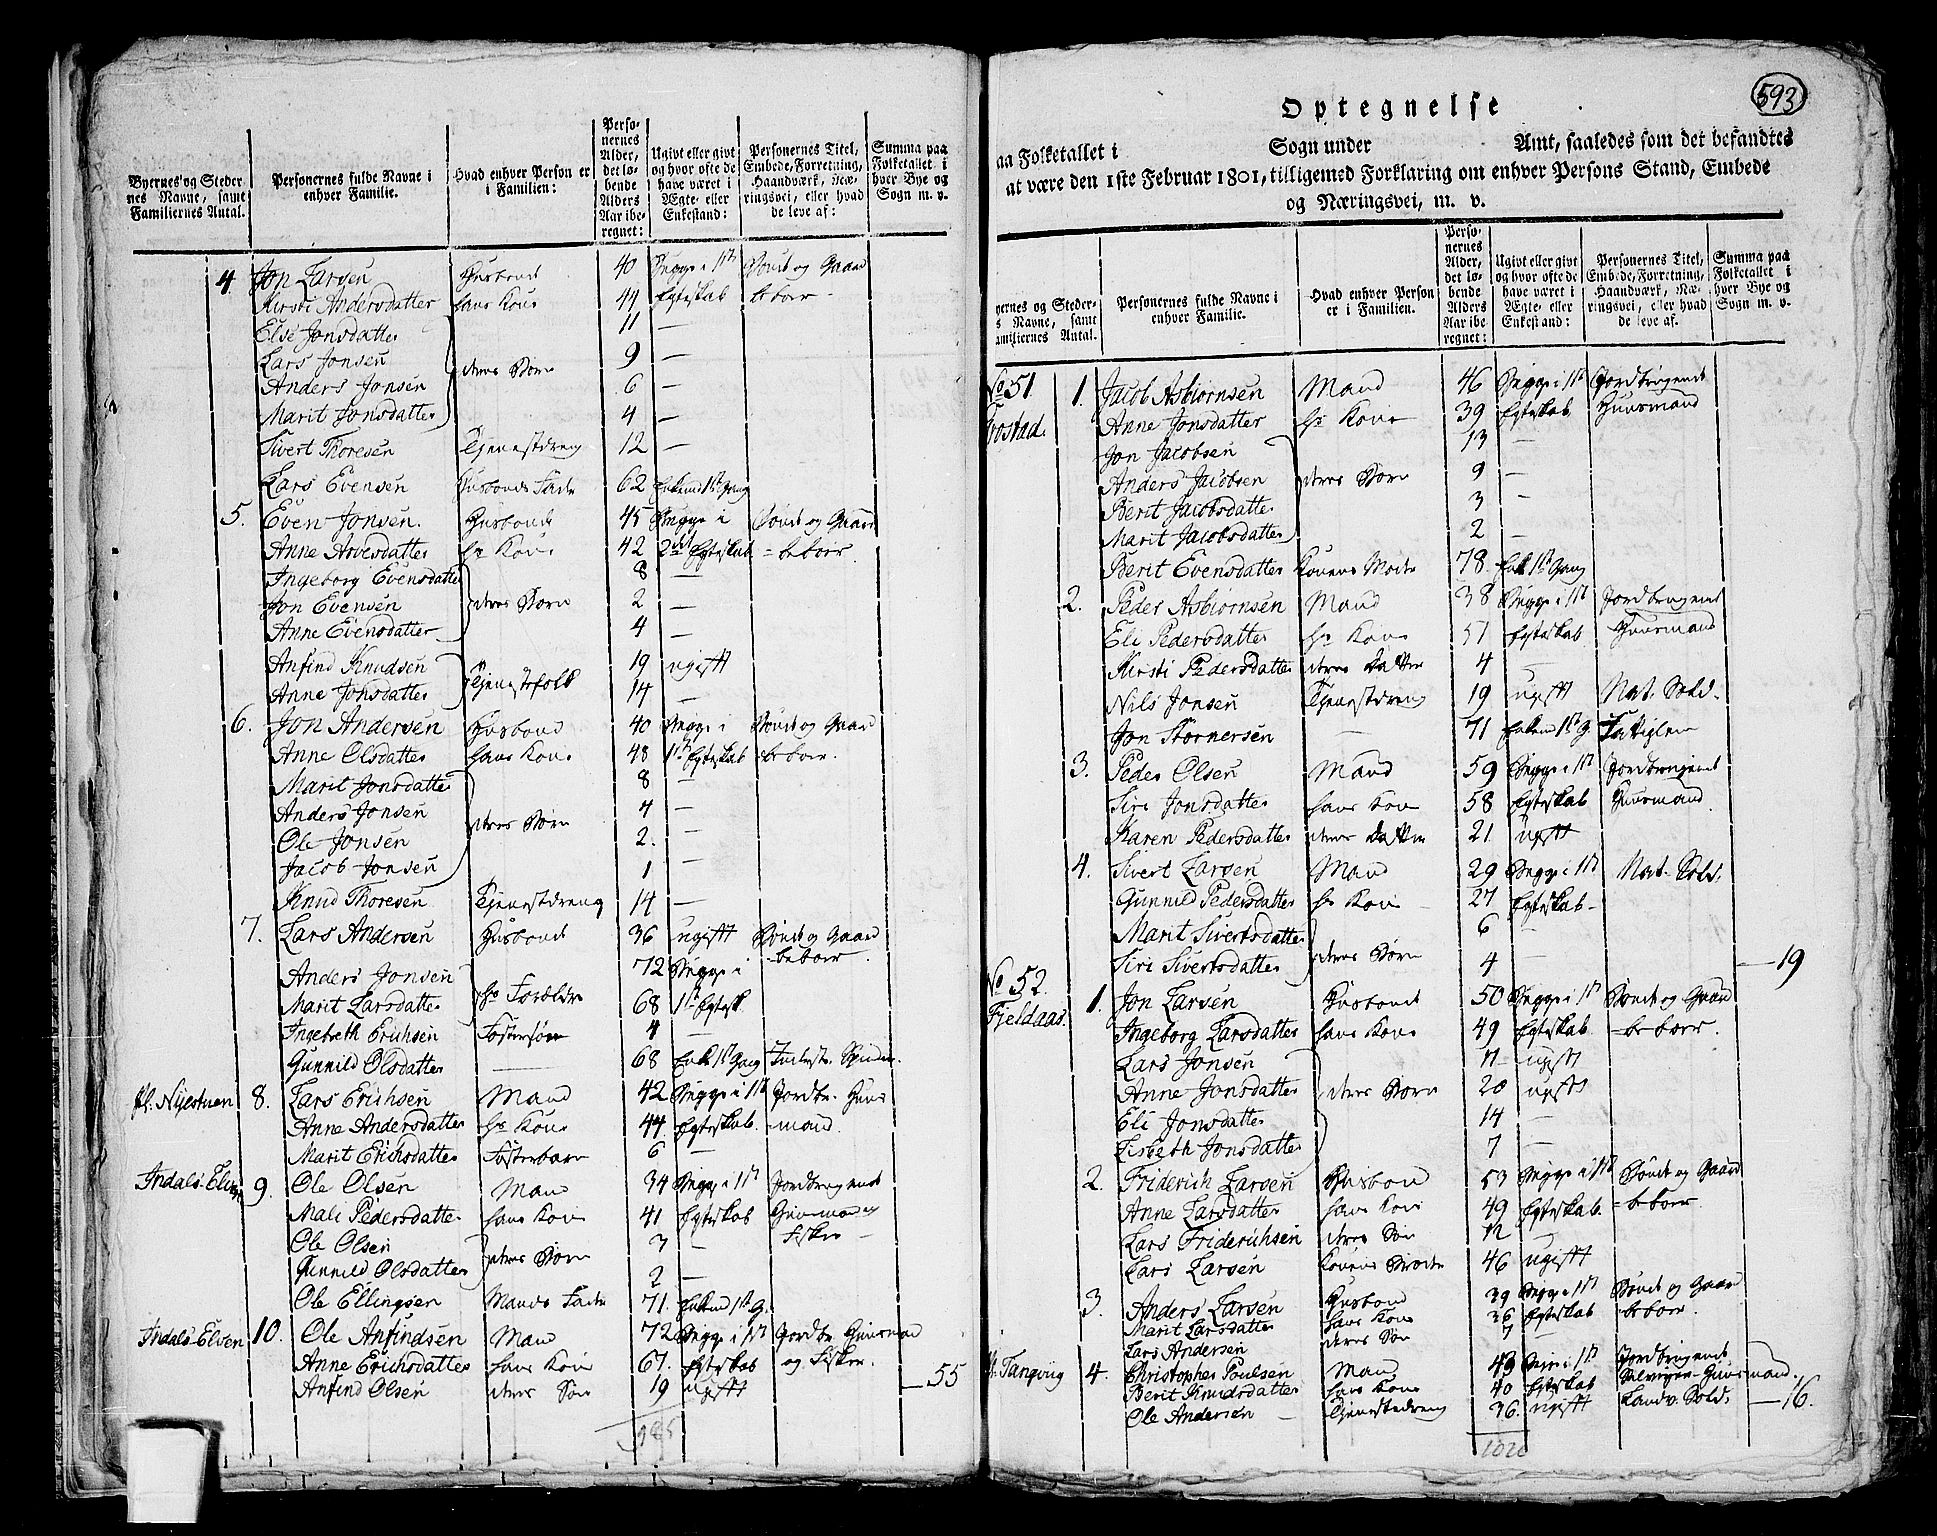 Byernes og Steder-
nes Navne, samt
Familiernes Antal.
Personernes fulde Navne i
enhver Familie.
Hvad enhver Person er
i Familien:
Perso-
nernes
Alder,
det lø-
bende
Alders
Aar ibe-
regnet:
Ugivt eller givt
og hvor ofte de
have været i
Ægte- eller
Enkestand:
Personernes Titel,
Embede, Forretning,
Haandværk, Næ-
ringsvei, eller hvad
de leve af:
Summa paa
Folketallet i
hver Bye og
Sogn m. v.
4. Jon Larsen Husbond 40 Begge i 1ste Bonde og Gaard
Kirsti Andersdatter hans Kone 44 Egteskab beboer
Else Jonsdatter 11 —
Lars Jonsen deres Børn 9 —
Anders Jonsen 6 —
Marit Jonsdatter 4 —
Sivert Thoresen Tjenestdreng 12 —
Lars Evensen Husbonds Fader 62 Enkemd 1ste Gang
5. Even Jonsen Husbonde 45 Begge i Bonde og Gaard
Anne Arvesdatter hs Kone 42 2det Egteskab = beboer.
Ingeborg Evensdatter 8 —
Jon Evensen deres Børn 2 —
Anne Evensdatter 4 —
Anfind Knudsen 19 ugift
Anne Johsdatter Tjenestefolk 14 —
6. Jon Andersen Husbond 40 Begge i Bonde og Gaard
Anne Olsdatter hans Kone 48 1ste Egteskab = beboer.
Marit Jonsdatter 8 —
Anders Jonsen deres Børn 4 —
Ole Jonsen 2. —
Jacob Jonsen 1 —
Knud Thoresen Tjenestdreng 14 —
7. Lars Andersen Husbond 36 ugift Bonde og Gaard
beboer.
Anders Jonsen 72 Begge i
Marit Larsdatter hs Forældre 68 1ste Egtesk.
Ingebreth Erichsen Fostersøn 4 —
Gunnild Olsdatter 68 Enke 1ste Gang
pl. Nijestuen 8. Lars Erichsen Mand 42 Begge i 1ste Jordbr. Huus
Anne Andersdatter hs Kone 44 Egteskab. mand.
Marit Erichsdatter Fosterbarn 6 —
Indals-Elven 9. Ole Olsen Mand 34 Begge i 1ste Jordbrugende
Mali Pedersdatter hans Kone 41 Egteskab Huusmand og
Ole Olsen deres Børn 3 — Fisker —
Gunnild Olsdatter 2 —
Ole Ellingsen Mands Fader 71. Enkemd 1ste G.
Indals-Elven 10. Ole Anfindsen Mand 72 Begge i 1ste Jordbr. Huusmand
Anne Erichsdatter hans Kone 67. Egteskab og Fisker.
Anfind Olsen deres Søn 19 ugift — 55
985
593
Optegnelse
aa Folketallet i Sogn under Amt, saaledes som det befandtes
at være den 1ste Februar 1801, tilligemed Forklaring om enhver Persons Stand, Embede
og Næringsvei, m. v.
yernes og Steder-
s Navne, samt
amiliernes Antal.
Personernes fulde Navne i
enhver Familie.
Hvad enhver Person
er i Familien.
Perso-
nernes
Alder,
det lø-
bende
Alders
Aar ibe-
regnet:
Ugivt eller givt
og hvor ofte de
have været i
Ægte- eller
Enkestand:
Personernes Titel,
Embede, Forretning,
Haandværk, Næ-
ringsvei, eller hvad
de leve af.
Summa paa
Folketallet i
hver Bye og
Sogn m. v.
No 51. 1. Jacob Asbiørnsen Mand 46 Begge i 1ste Jordbrugende
Anne Jonsdatter hs Kone 39 Egteskab Huusmand
Jon Jacobsen 13 —
Anders Jacobsen deres Børn 9 —
Berit Jacobsdatter 3 —
Marit Jacobsdatter 2 —
Berit Evensdatter Konens Moder 78. Enke 1ste Gang
2. Peder Asbiørnsen Mand 38 Begge i 1ste Jordbrugende
Eli Pedersdatter hs Kone 51 Egteskab Huusmand
Kirsti Pedersdatter deres Datter 4 —
Nils Jonsen Tjenestdreng 19 ugift Nat. Sold.
Jon Størnersen — 71 Enkemd 1ste G. Fattiglem
3. Peder Olsen Mand 59 Begge i 1ste Jordbrugende
Siri Jonsdatter hans Kone 58 Egteskab Huusmand.
Karen Pedersdatter deres Datter 21 ugift
4. Sivert Larsen Mand 29 Begge i 1ste Nat. Sold.
Gunnild Pedersdatter hs Kone 27 Egteskab
Marit Sivertsdatter 6 —
Siri Sivertsdatter deres Børn 4 — — 19
No 52.
Fjeldaas. 1. Jon Larsen Husbonde 50 Begge i 1ste Bonde og Gaard
Ingeborg Larsdatter hans Kone 49 Egteskab = beboer.
Lars Jonsen 17 ugift
Anne Jonsdatter deres Børn 20 ugift
Eli Jonsdatter 14 —
Lisbeth Jonsdatter 7 —
2. Friderich Larsen Husbond 53 Begge i 1ste Bonde og Gaard
Anne Larsdatter hans Kone 49 Egteskab. = beboer.
Lars Friderichsen deres Søn 12 —
Lars Larsen Konens Broder 46 ugift
3. Anders Larsen Husbond 39 Begge i 1ste Bonde og Gaard
Marit Larsdatter hans Kone 36 Egteskab beboer.
Lars Andersen deres Søn 7 —
Tangvig 4. Christopher Poulsen Mand 43 Begge i 1ste Jordbrugende
Berit Knudsdatter hans Kone 40 Egteskab Huusmand.
Ole Andersen — Tjenestedreng 36. ugift Landv. Sold. — 16.
1020